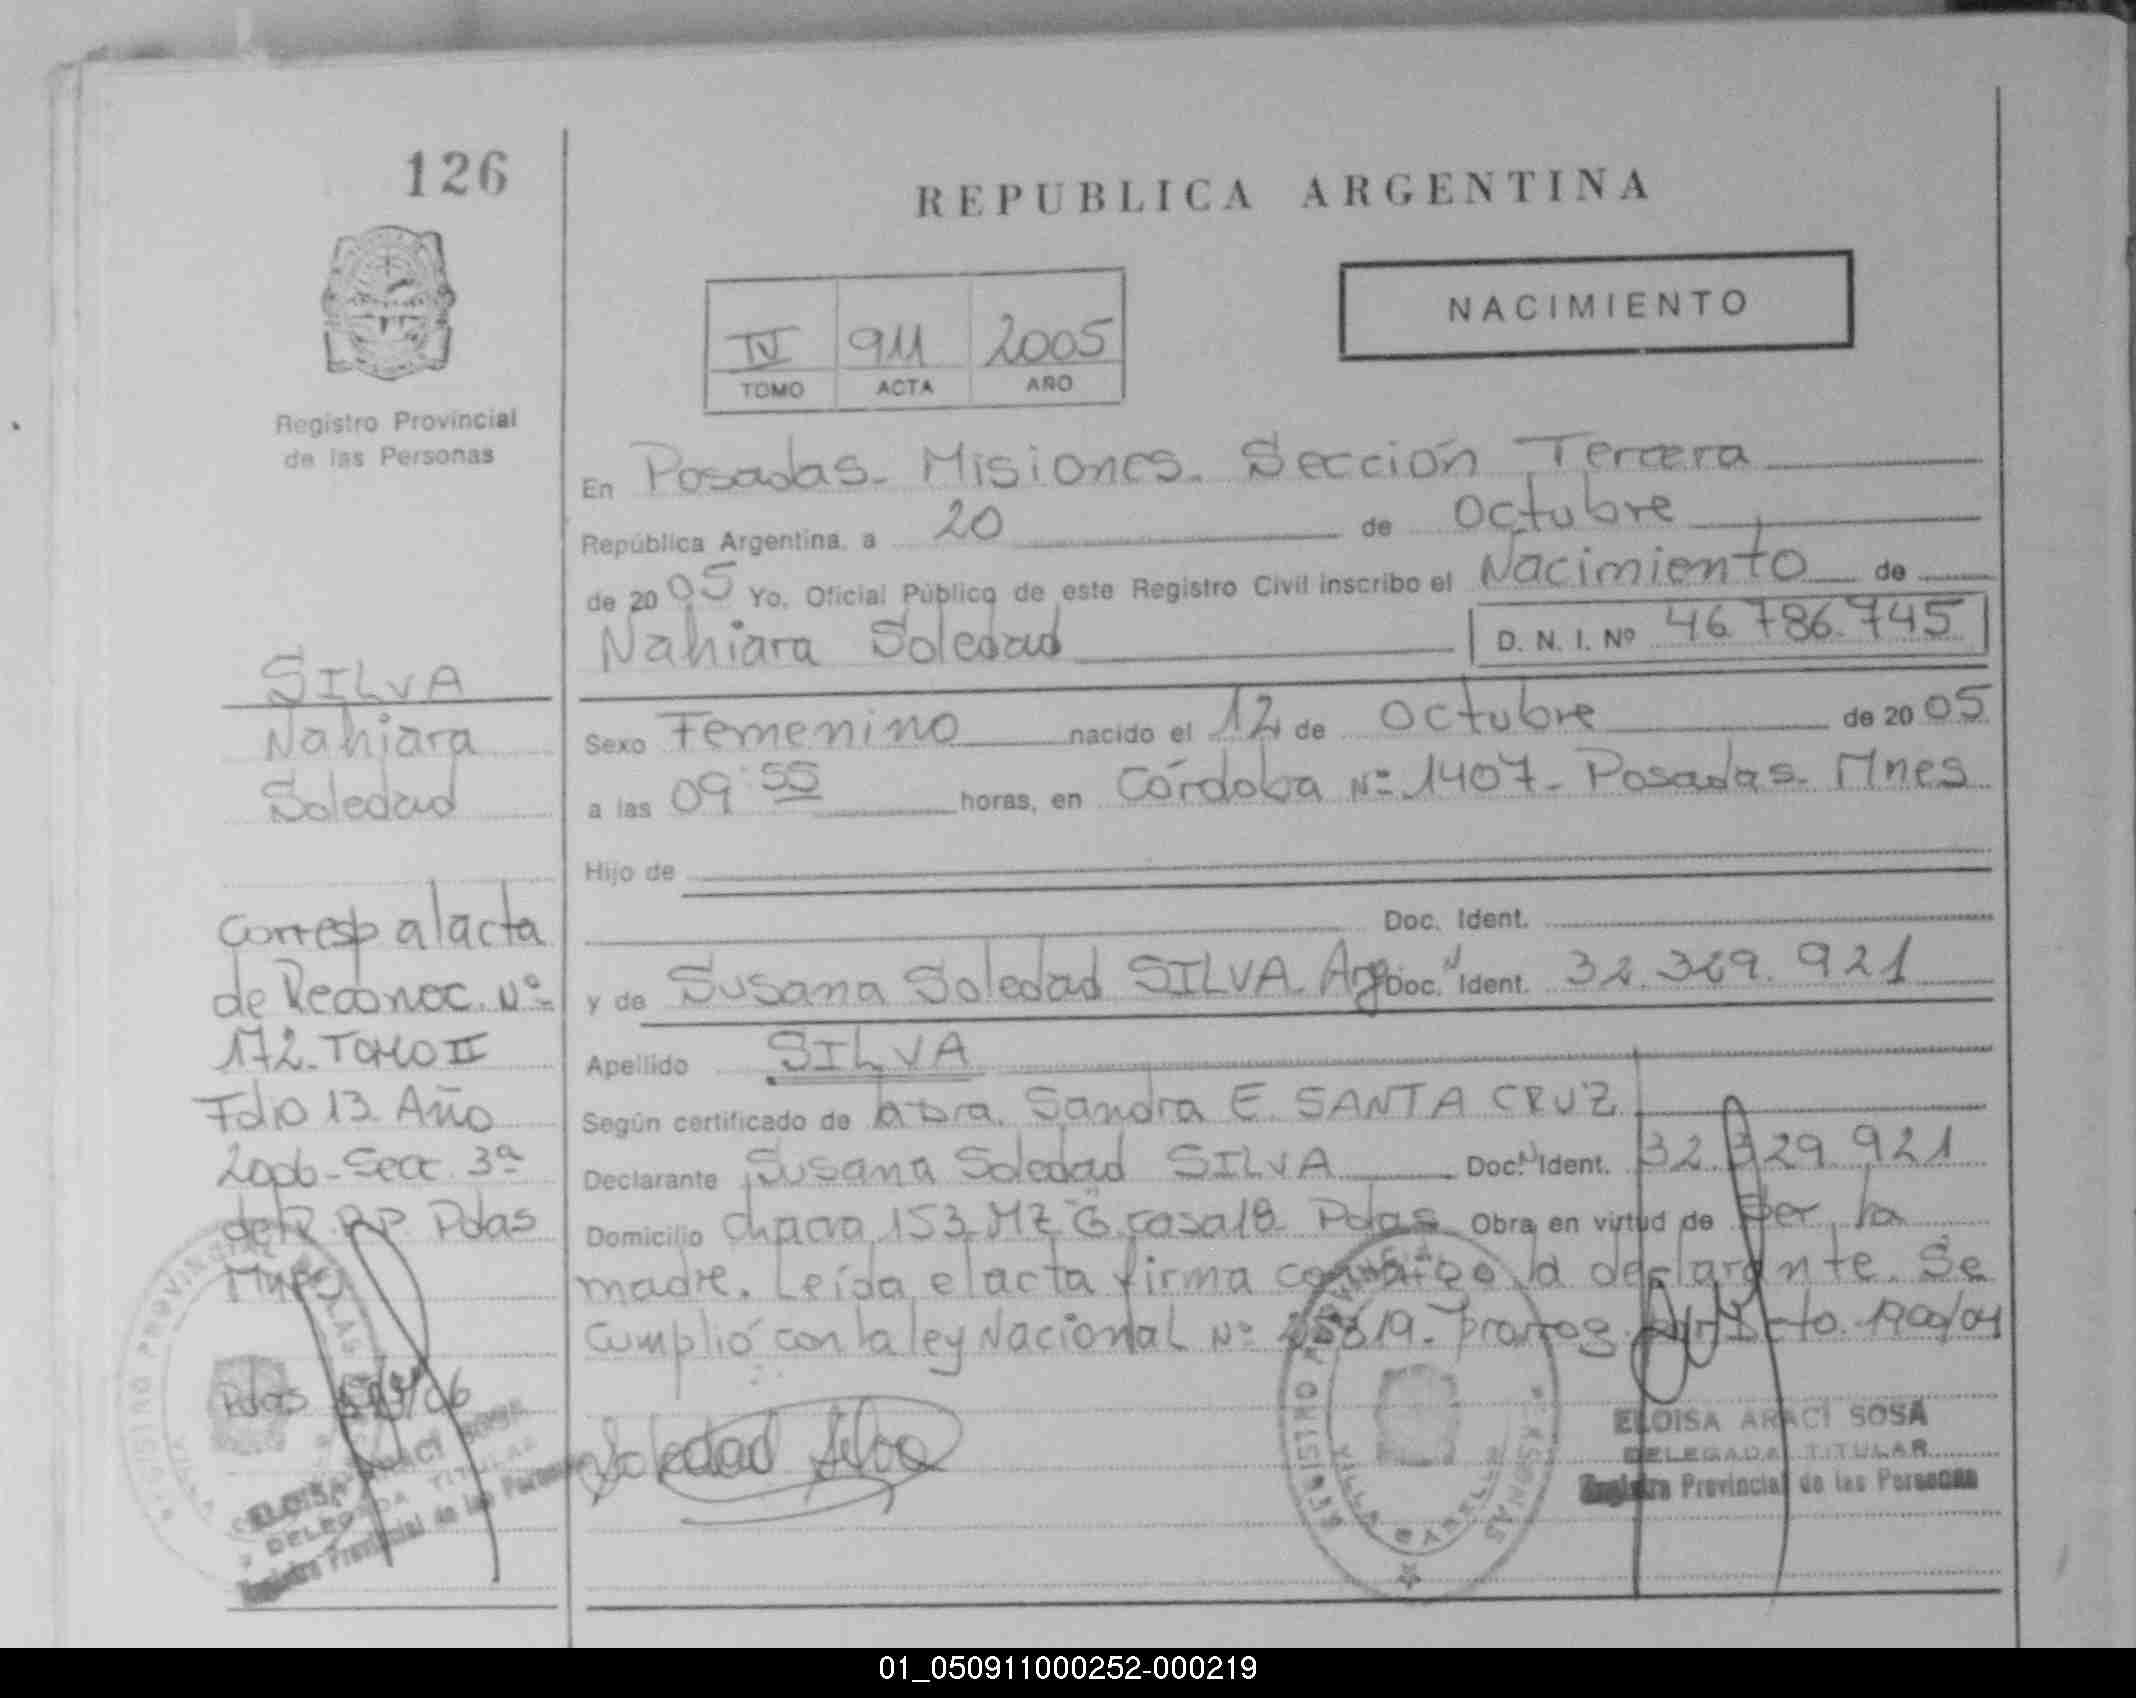 126
REPUBLICA ARGENTINA
NACIMIENTO
IV 911 2005
TOMO ACTA AÑO
Registro Provincial
de las Personas
En Posadas. Misiones. Sección Tercera
República Argentina, a 20 de Octubre
de 2005 Yo, Oficial Público de este Registro Civil inscribo el Nacimiento de
Nahiara Soledad D. N. I. Nº 46.786.745
SILVA
Nahiara
Soledad
Sexo Femenino nacido el 12 de Octubre de 2005
a las 09:55 horas, en Córdoba Nº 1407. Posadas. Mnes
Hijo de
Doc. Ident.
y de Susana Soledad SILVA. Arg Doc. Ident. 32.329.921
Apellido SILVA
Según certificado de la Dra. Sandra E. SANTA CRUZ
Declarante Susana Soledad SILVA Doc. Ident. 32.329.921
Domicilio Chacra 153 MZ "G" casa 18 Pdas Obra en virtud de Ser la
madre. Leída el acta firma conmigo la declarante. Se
cumplió con la ley Nacional Nº 25819. Prorrog. Dto. 1900/04
Corresp al acta
de Reconoc. Nº
172. TOMO II
Folio 13. Año
2006 - Secc. 3ª
del R.P.P. Pdas
Mnes
Pdas /06
Soledad Silva
ELOISA ARACI SOSA
DELEGADA TITULAR
Registro Provincial de las Personas
ELOISA ARACI SOSA
DELEGADA TITULAR
Registro Provincial de las Personas
REGISTRO PROVINCIAL
VILLA
01_050911000252-000219